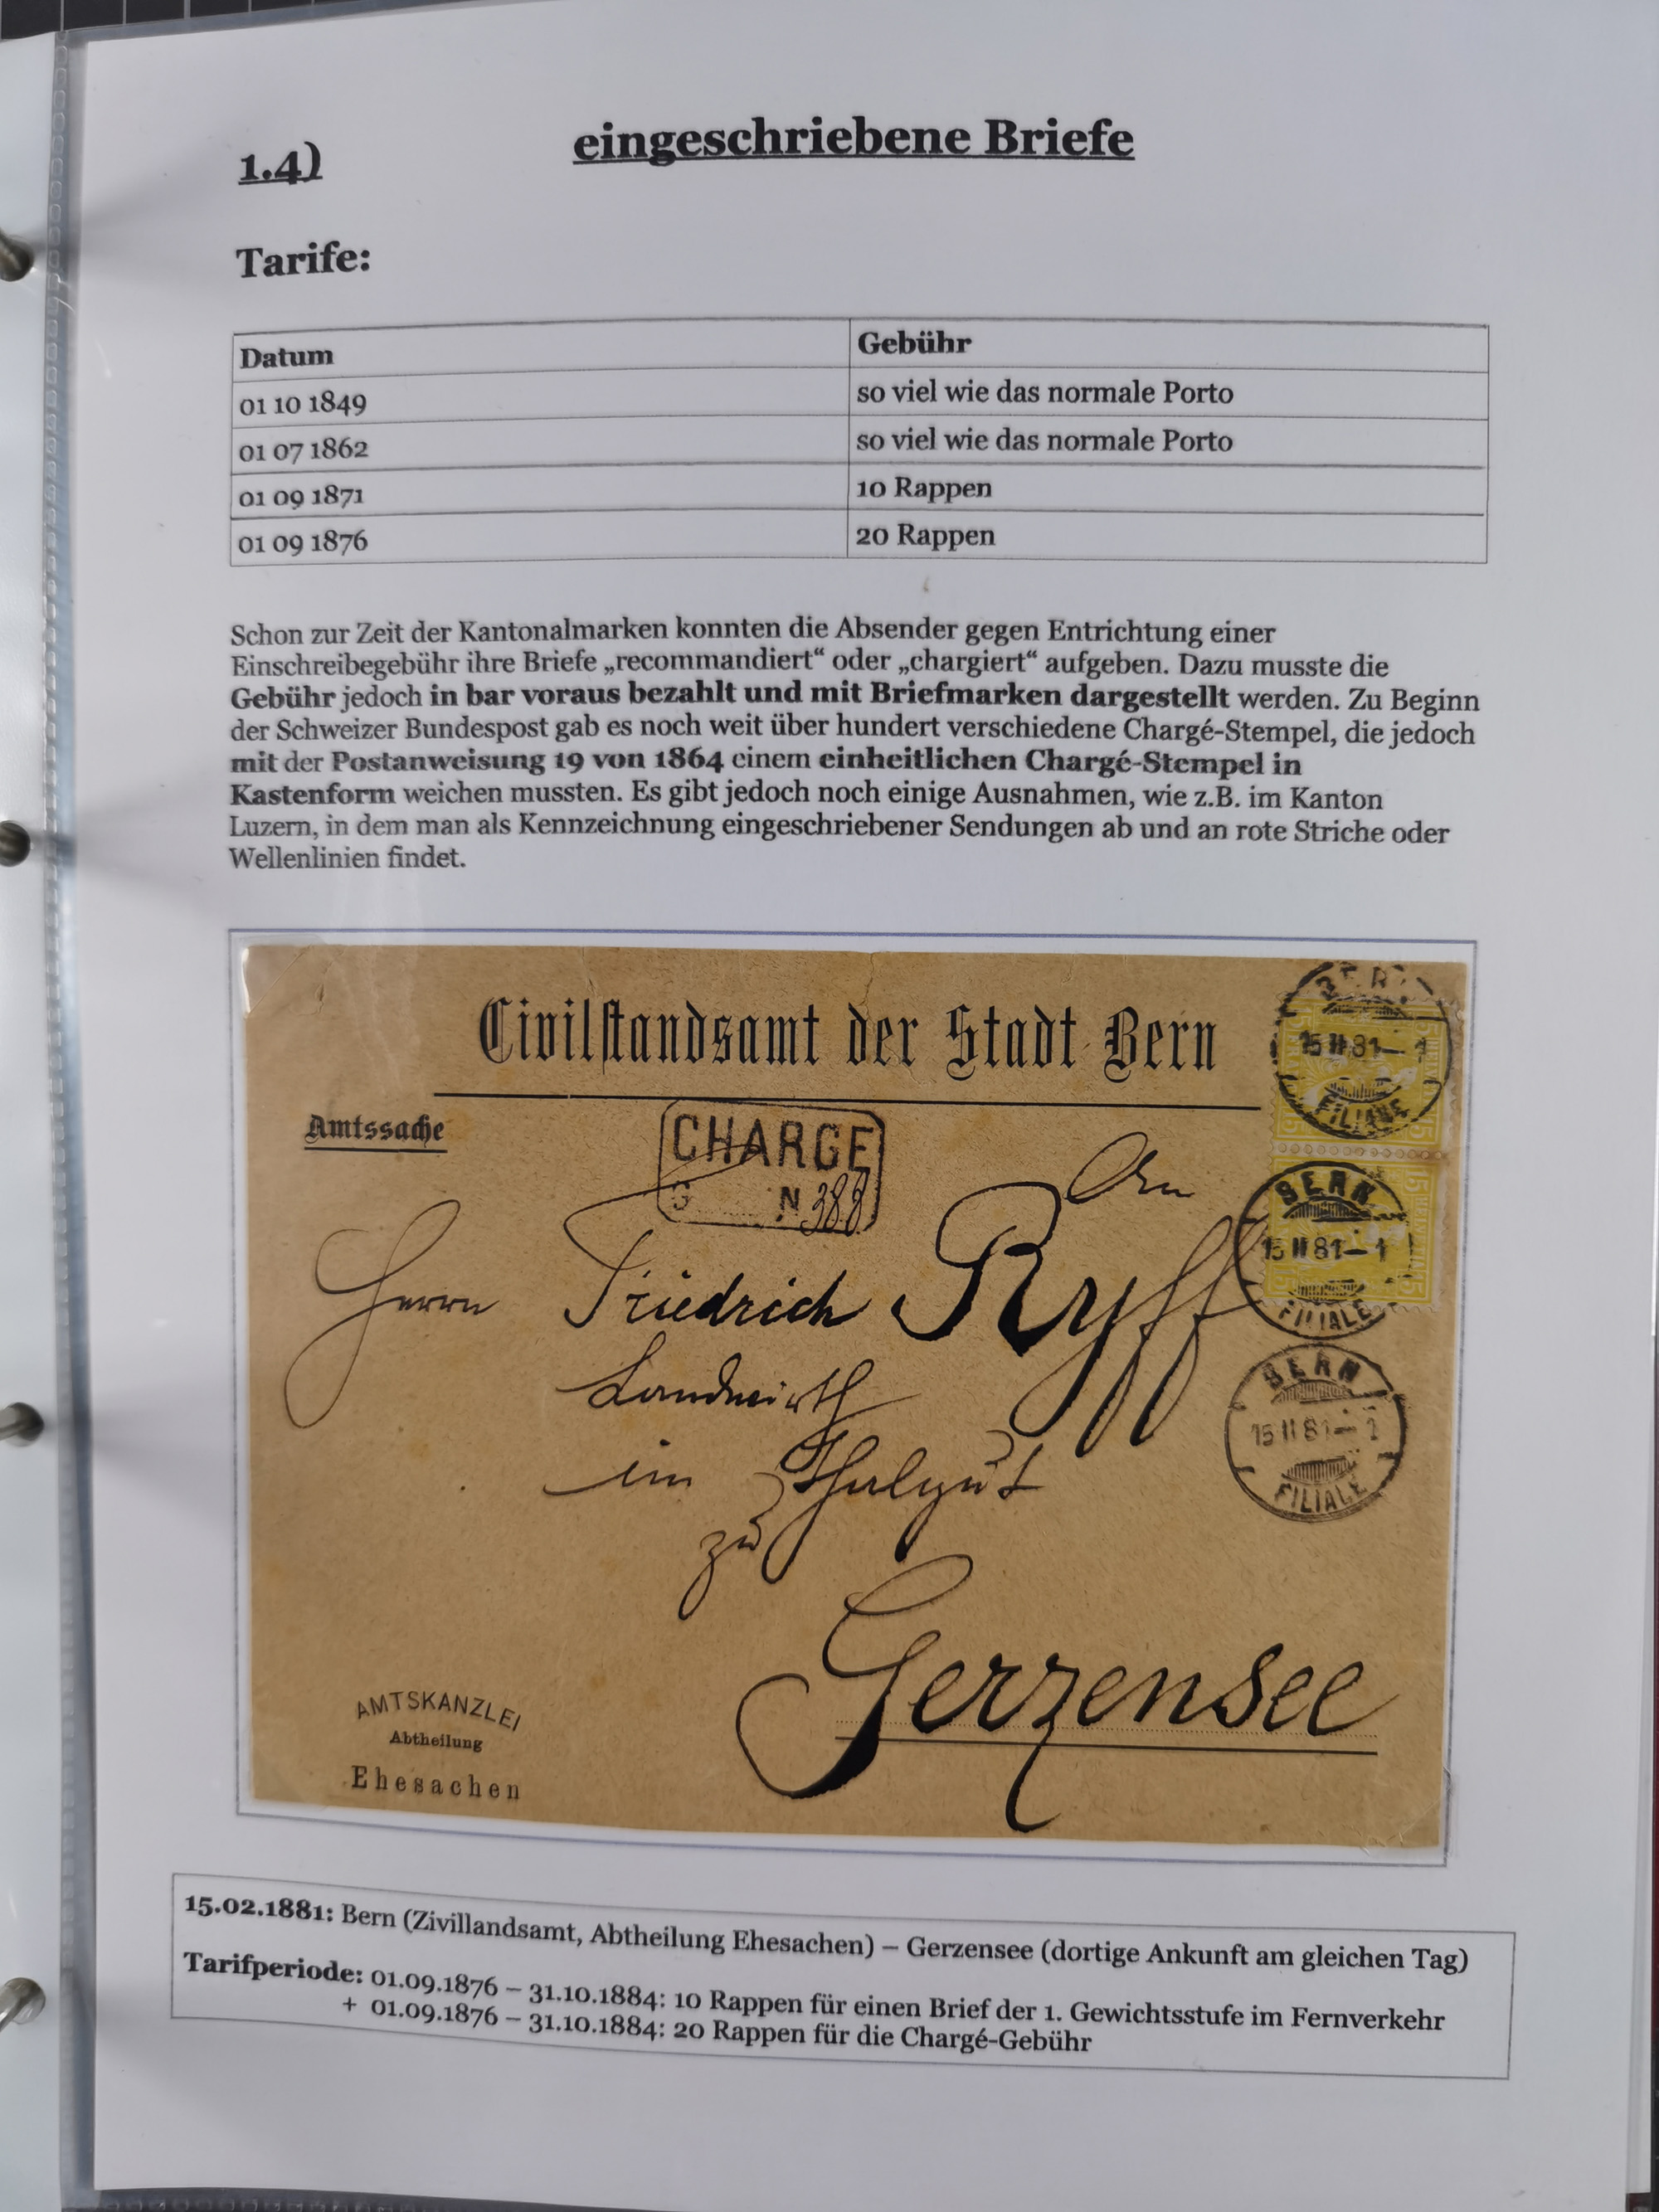 1.4) eingeschriebene Briefe
Tarife:
Datum Gebühr
01 10 1849 so viel wie das normale Porto
01 07 1862 so viel wie das normale Porto
01 09 1871 10 Rappen
01 09 1876 20 Rappen
Schon zur Zeit der Kantonalmarken konnten die Absender gegen Entrichtung einer
Einschreibegebühr ihre Briefe „recommandiert“ oder „chargiert“ aufgeben. Dazu musste die
Gebühr jedoch in bar voraus bezahlt und mit Briefmarken dargestellt werden. Zu Beginn
der Schweizer Bundespost gab es noch weit über hundert verschiedene Chargé-Stempel, die jedoch
mit der Postanweisung 19 von 1864 einem einheitlichen Chargé-Stempel in
Kastenform weichen mussten. Es gibt jedoch noch einige Ausnahmen, wie z.B. im Kanton
Luzern, in dem man als Kennzeichnung eingeschriebener Sendungen ab und an rote Striche oder
Wellenlinien findet.
Civilstandsamt der Stadt Bern
BERN
15 II 81–1
FILIALE
Amtssache
CHARGE
N 388
BERN
15 II 81–1
FILIALE
Herrn Friedrich Ryff
Landwirth
im Thalgut
zu
Gerzensee
BERN
15 II 81–1
FILIALE
AMTSKANZLEI
Abtheilung
Ehesachen
15.02.1881: Bern (Zivillandsamt, Abtheilung Ehesachen) – Gerzensee (dortige Ankunft am gleichen Tag)
Tarifperiode: 01.09.1876 – 31.10.1884: 10 Rappen für einen Brief der 1. Gewichtsstufe im Fernverkehr
+ 01.09.1876 – 31.10.1884: 20 Rappen für die Chargé-Gebühr